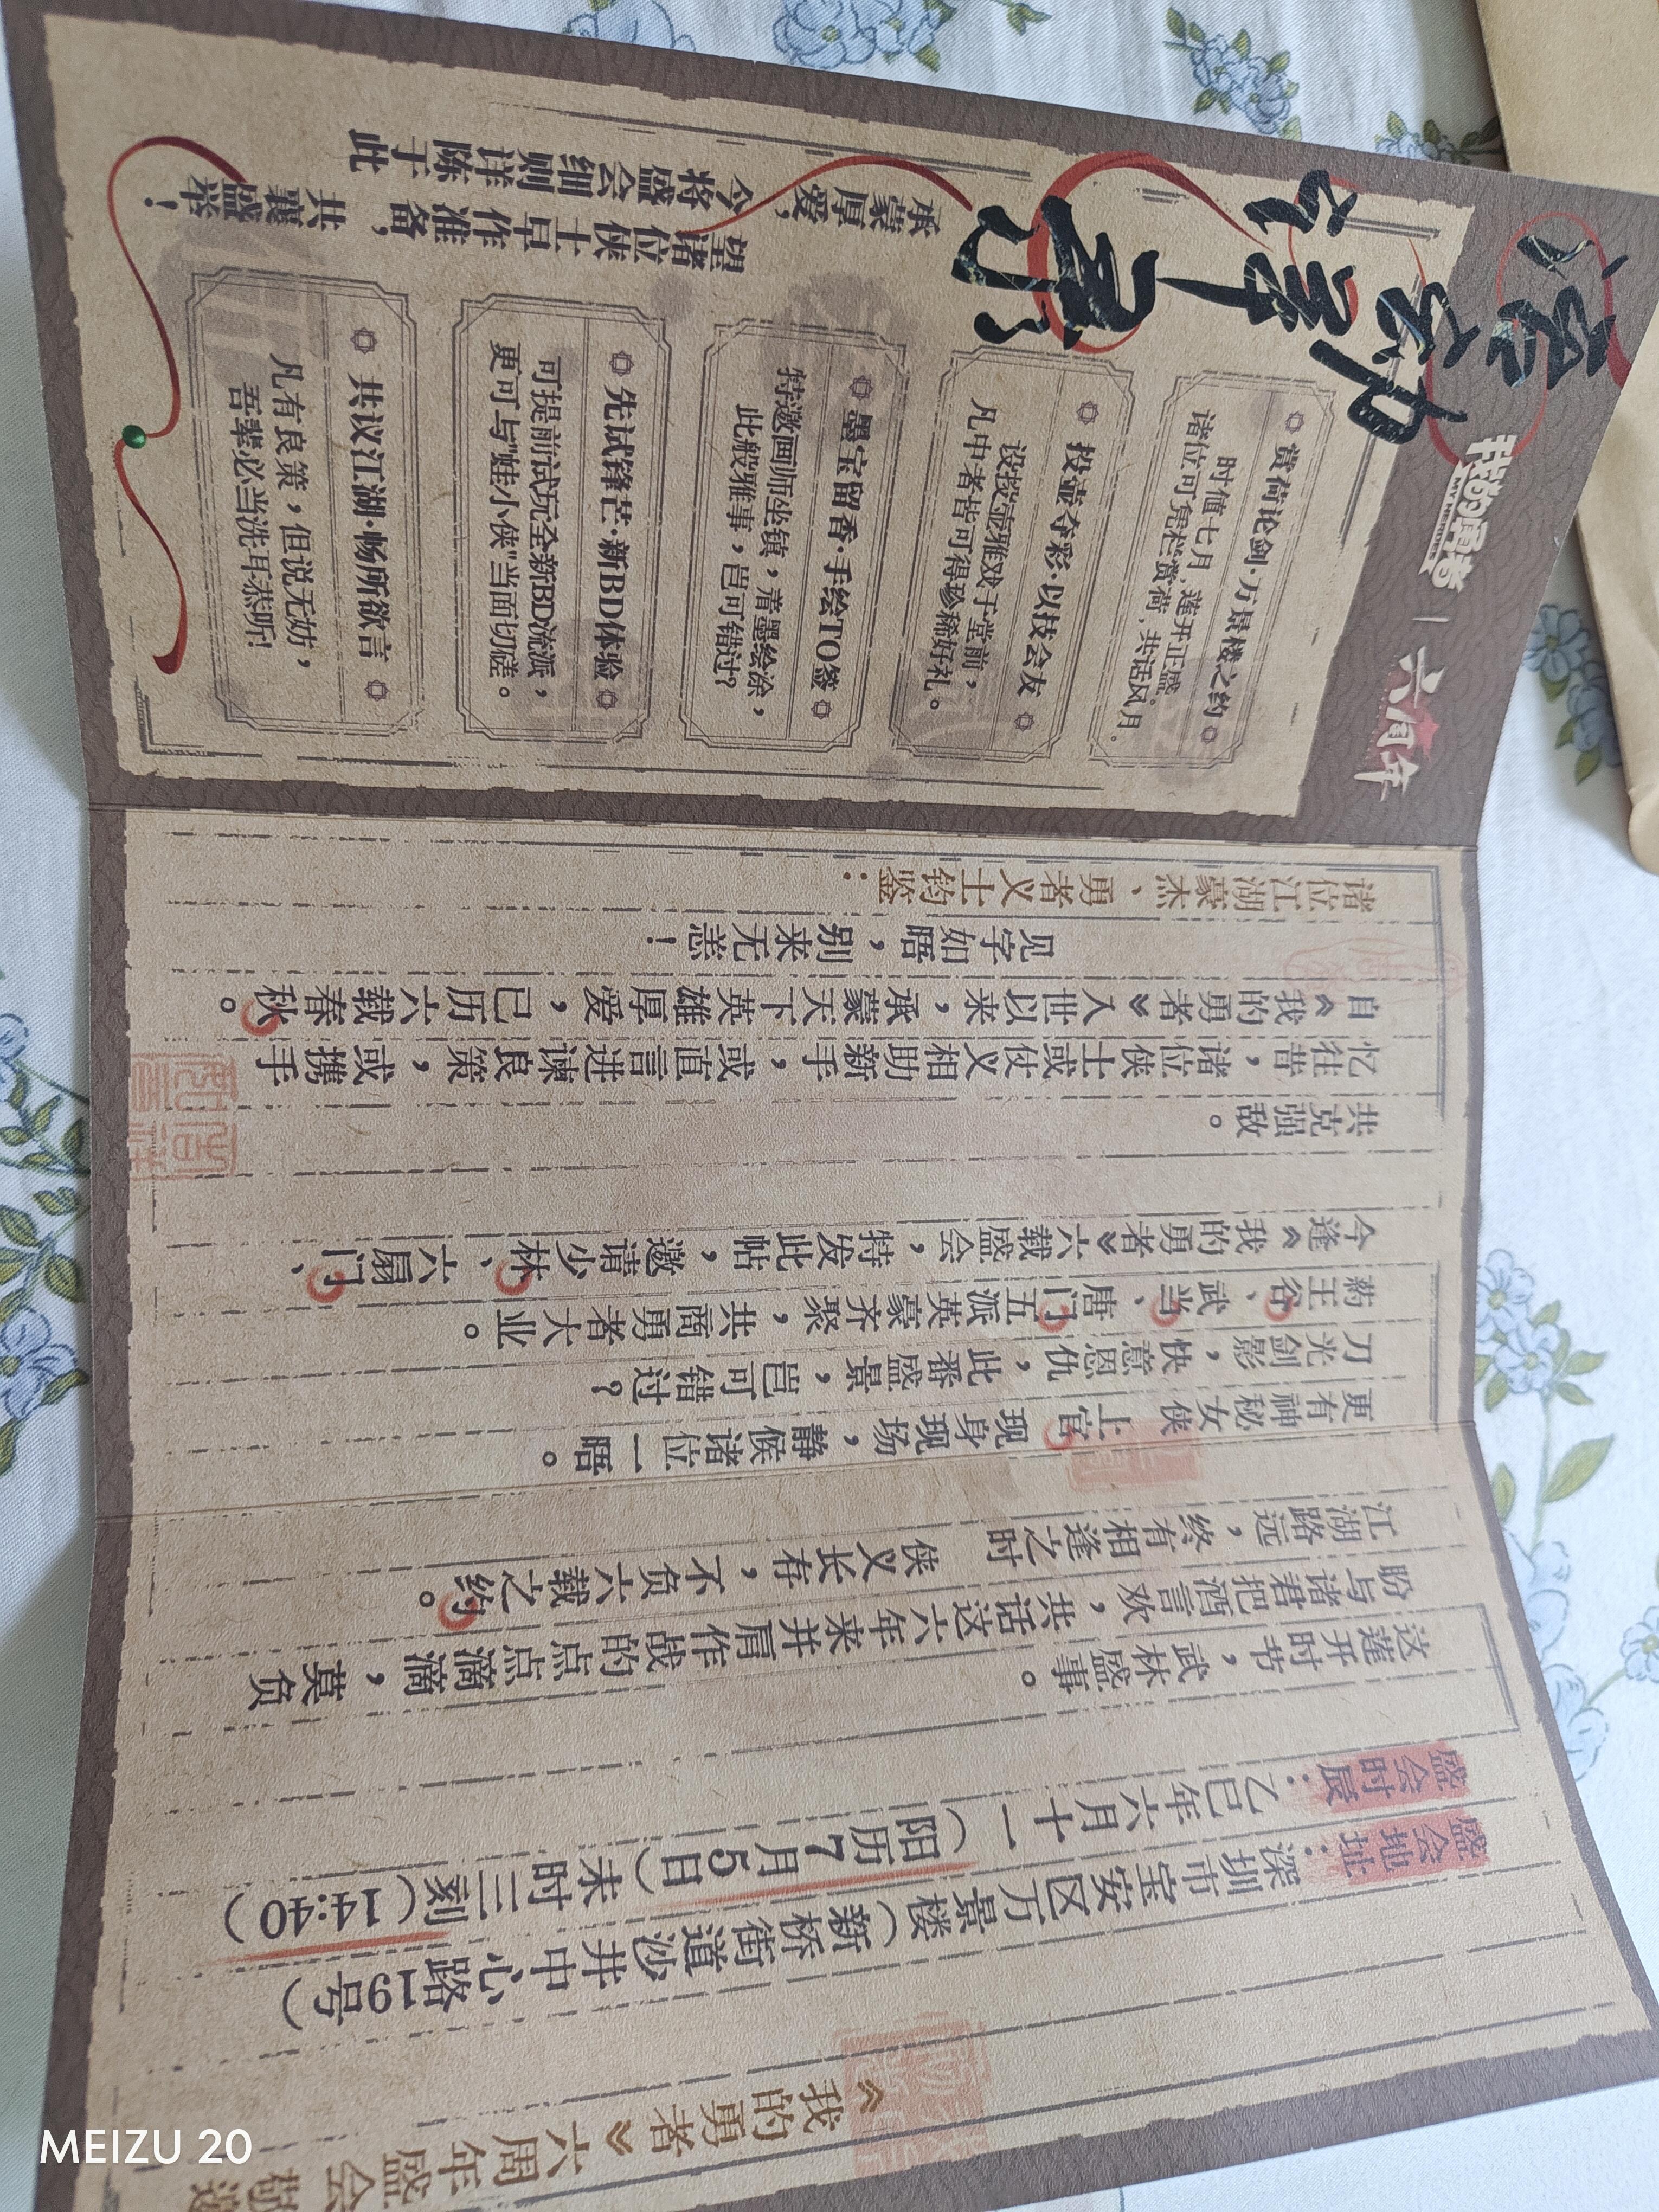 我的勇者
MY HEROES
六周年
承蒙厚爱，今将盛会细则详陈于此
望诸位侠士早作准备，共襄盛举！
赏荷论剑·万景楼之约
时值七月，莲开正盛，
诸位可凭栏赏荷，共话风月。
投壶夺彩·以技会友
设投壶雅戏于堂前，
凡中者皆可得珍稀好礼。
墨宝留香·手绘TO签
特邀画师坐镇，着墨绘涂，
此般雅事，岂可错过？
先试锋芒·新BD体验
可提前试玩全新BD流派，
更可与"蛙小侠"当面切磋。
共议江湖·畅所欲言
凡有良策，但说无妨，
吾辈必当洗耳恭听！
诸位江湖豪杰、勇者义士钧鉴：
见字如晤，别来无恙！
自《我的勇者》入世以来，承蒙天下英雄厚爱，已历六载春秋。
忆往昔，诸位侠士或仗义相助新手，或直言进谏良策，或携手
共克强敌。
今逢《我的勇者》六载盛会，特发此帖，邀请少林、六扇门、
药王谷、武当、唐门五派英豪齐聚，共商勇者大业。
刀光剑影，快意恩仇，此番盛景，岂可错过？
更有神秘女侠 上官 现身现场，静候诸位一晤。
江湖路远，终有相逢之时 侠义长存，不负六载之约。
盼与诸君把酒言欢，共话这六年来并肩作战的点点滴滴，莫负
这莲开时节，武林盛事。
盛会时辰：乙巳年六月十一（阳历7月5日）未时三刻（14:40）
盛会地址：深圳市宝安区万景楼（新桥街道沙井中心路19号）
《我的勇者》六周年盛会 敬邀
MEIZU 20